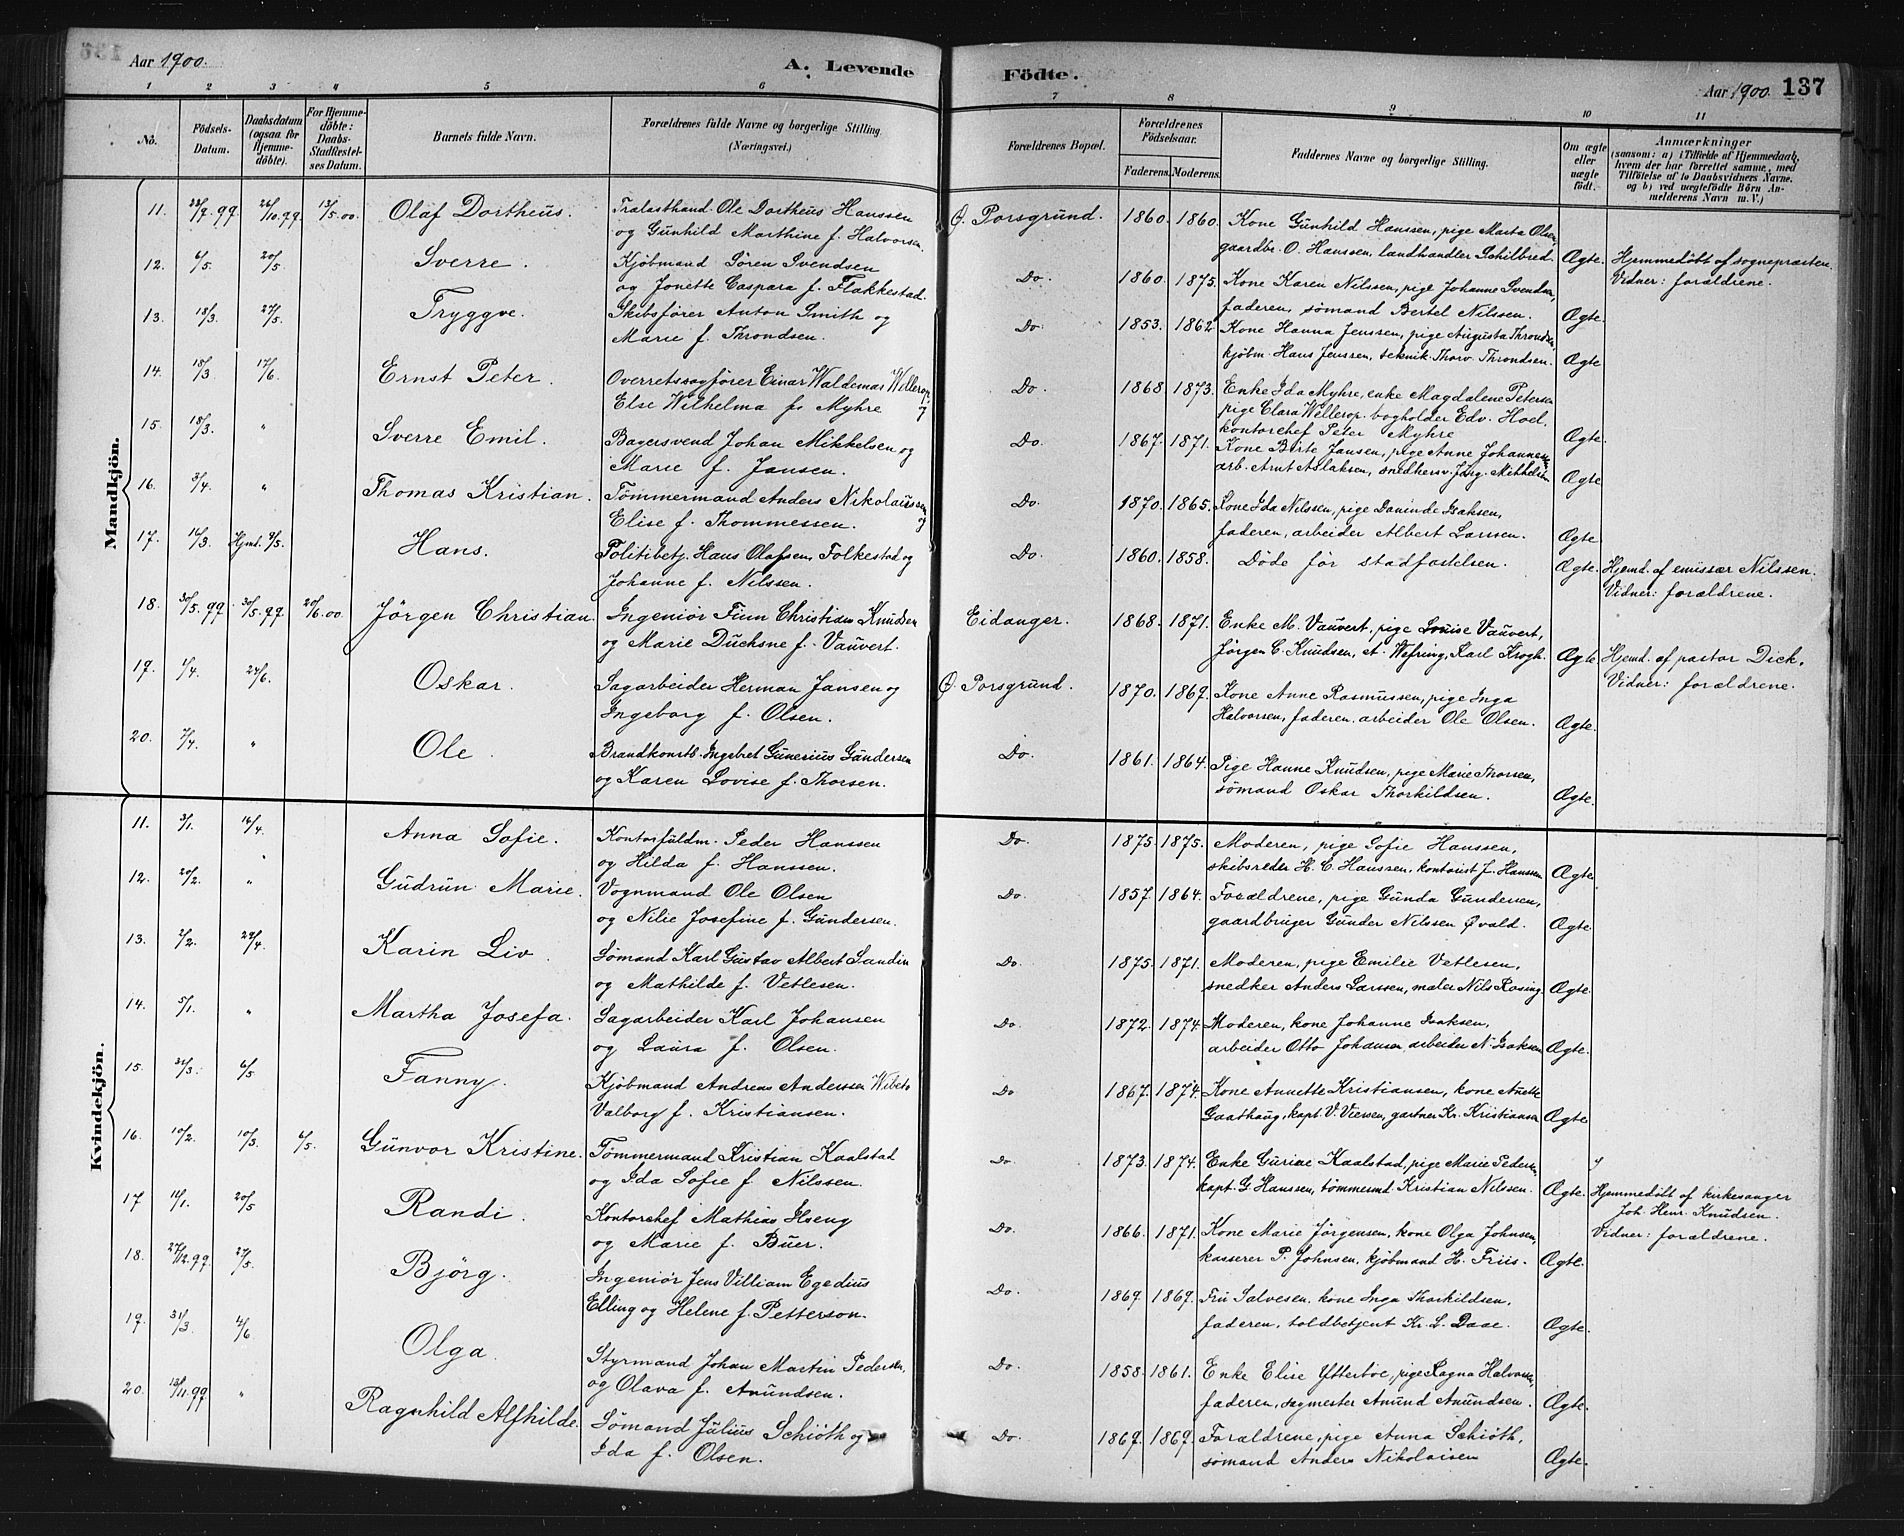 Aar 1900. A. Levende Födte. Aar 1900. 137
1 2 3 4 5 6 7 8 9 10 11
No.
Födsels-Datum.
Daabsdatum (ogsaa for Hjemmedöbte).
For Hjemmedöbte: Daabs-Stadfæstelses Datum.
Barnets fulde Navn.
Forældrenes fulde Navne og borgerlige Stilling.
(Næringsvei.)
Forældrenes Bopæl.
Forældrenes Födselsaar.
Faderens. Moderens.
Faddernes Navne og borgerlige Stilling.
Om ægte eller uægte födt.
Anmærkninger
(saasom: a) i Tilfælde af Hjemmedaab, hvem der har forrettet samme, med Tilföielse af to Daabsvidners Navne. og b) ved uægtefödte Börn Anmelderens Navn m. V.)
Mandkjön.
11. 22/7.99. 26/10.99. 13/5.00. Olaf Dortheus. Tralasthand. Ole Dortheus Hanssen Ø. Porsgrund. 1860. 1860. Kone Gunhild Hanssen, pige Marta Olsen,
og Gunhild Marthine f. Halvorsen gaardbr. O. Hanssen, landhandler Schilbred. Ægte. Hjemmedöbt af sognepræsten.
Vidner: forældrene.
12. 6/5. 20/5. Sverre. Kjöbmand Sören Svendsen Do. 1860. 1875. Kone Karen Nilssen, pige Johanne Svendsen,
og Jonette Caspara f. Flakkestad. faderen, sömand Bertel Nilssen. Ægte.
13. 18/3. 27/5. Tryggve. Skibsförer Anton Smith og Do. 1853. 1862. Kone Hanna Jenssen, pige Augusta Throndsen,
Marie f. Throndsen. kjöbm. Hans Jenssen, teknik. Thorv. Throndsen. Ægte
14. 18/3. 17/6. Ernst Peter. Overretssagförer Einar Waldemar Willerop, Do. 1868 1873. Enke Ida Myhre, enke Magdalene Petersen
Else Wilhelma f. Myhre pige Clara Willerop. bogholder Edv. Hoel,
kontorchef Peter Myhre Ægte.
15. 18/3. " Sverre Emil. Bagersvend Johan Mikkelsen og Do. 1867. 1871. Kone Birte Jansen, pige Anne Johannesen
Marie f. Jansen. arb. Arnt Aslaksen, snedkersv. Jörg. Mikkelsen Ægte
16. 3/4. " Thomas Kristian. Tömmermand Anders Nikolaussen og Do. 1870. 1865. Kone Ida Nilssen, pige Isaksen,
Elise f. Thommessen. faderen, arbeider Albert Larssen. Ægte
17. 16/3. Hjmd. 9/5. Hans. Politibetj. Hans Olafsen Folkestad og Do. 1860. 1858. Döde för stadfæstelsen. Ægte. Hjemd. af emissær Nilssen.
Johanne f. Nilssen. Vidner: forældrene.
18. 30/5.99. 30/5.99. 20/6.00. Jörgen Christian. Ingeniör Finn Christian Knudsen Eidanger. 1868. 1871. Enke M. Vauvert, pige Louise Vauvert,
og Marie Duchsne f. Vauvert. Jörgen C. Knudsen, st. Wefring, Karl Krogh. Ægte Hjemd. af pastor Dick.
Vidner: forældrene.
19. 1/4. 24/6. Oskar. Sagarbeider Herman Jansen og Ø. Porsgrund. 1870. 1869. Kone Anne Rasmussen, pige Inga
Ingeborg f. Olsen. Halvorsen, faderen, arbeider Ole Olsen. Ægte.
20. 7/4. " Ole. Brandkonst. Ingebret Gunerius Gundersen Do. 1861. 1864. Pige Hanne Knudsen, pige Marie Thorsen,
og Karen Lovise f. Thorsen. sömand Oskar Thorkildsen. Ægte.
Kvindekjön.
11. 3/1. 16/4. Anna Sofie. Kontorfuldm. Peder Hanssen Do. 1875. 1875. Moderen, pige Sofie Hanssen,
og Hilda f. Hanssen. skibsreder H. C. Hanssen, kontorist J. Hanssen Ægte.
12. 20/2. " Gudrun Marie. Vognmand Ole Olsen Do. 1857. 1864. Forældrene, pige Gunda Gundersen,
og Nilie Josefine f. Gundersen. gaardbruger Gunder Nilssen Øvald. Ægte.
13. 2/2. 29/4. Karin Liv. Sömand Karl Gustav Albert Sandin Do. 1875. 1871. Moderen, pige Emilie Vetlesen,
og Mathilde f. Vetlesen. snedker Anders Larssen, maler Nils Rosing. Ægte.
14. 5/1. " Martha Josefa. Sagarbeider Karl Johansen Do. 1872. 1874. Moderen, kone Johanne Isaksen,
og Laura f. Olsen. arbeider Otto Johansen, arbeider N. Isaksen Ægte.
15. 31/3. 6/5. Fanny. Kjöbmand Andreas Anderssen Wibeto Do. 1867. 1874. Kone Annette Kristiansen, kone Anette
Valborg f. Kristiansen. Gaathaug, kapt. V. Viersen, gartner Kr. Kristiansen Ægte.
16. 10/2. 10/3. 6/5. Gunvor Kristine. Tömmermand Kristian Kaalstad Do. 1873. 1874. Enke Gurine Kaalstad, pige Marie Pedersen
og Ida Sofie f. Nilssen. kapt. G. Hanssen, tömmermd. Kristian Nilssen. Ægte. Hjemmedöbt af kirkesanger
Joh. Henr. Knudsen.
Vidner: forældrene.
17 14/1. 20/5 Randi. Kontorchef Mathias Iseng Do. 1866. 1871. Kone Marie Jörgensen, kone Olga Johnsen,
og Marie f. Buer. kasserer P. Johnsen, kjöbmand H. Friis. Ægte.
18. 27/12.99. 27/5. Björg. Ingeniör Jens Villiam Egedius Do. 1869. 1869. Fru Salvesen, kone Inga Thorkildsen,
Elling og Helene f. Petterson. faderen, toldbetjent Kr. L. Daae. Ægte.
19. 31/3. 4/6. Olga. Styrmand Johan Martin Pedersen Do. 1858. 1861. Enke Elise Ytterböe, pige Ragna Halvorsen,
og Olava f. Amundsen. faderen, sagmester Amund Amundsen. Ægte.
20. 13/11.99 " Ragnhild Alfhilde. Sömand Julius Schiöth og Do. 1869. 1869. Forældrene, pige Anna Schiöth,
Ida f. Olsen. sömand Anders Nikolaisen Ægte.